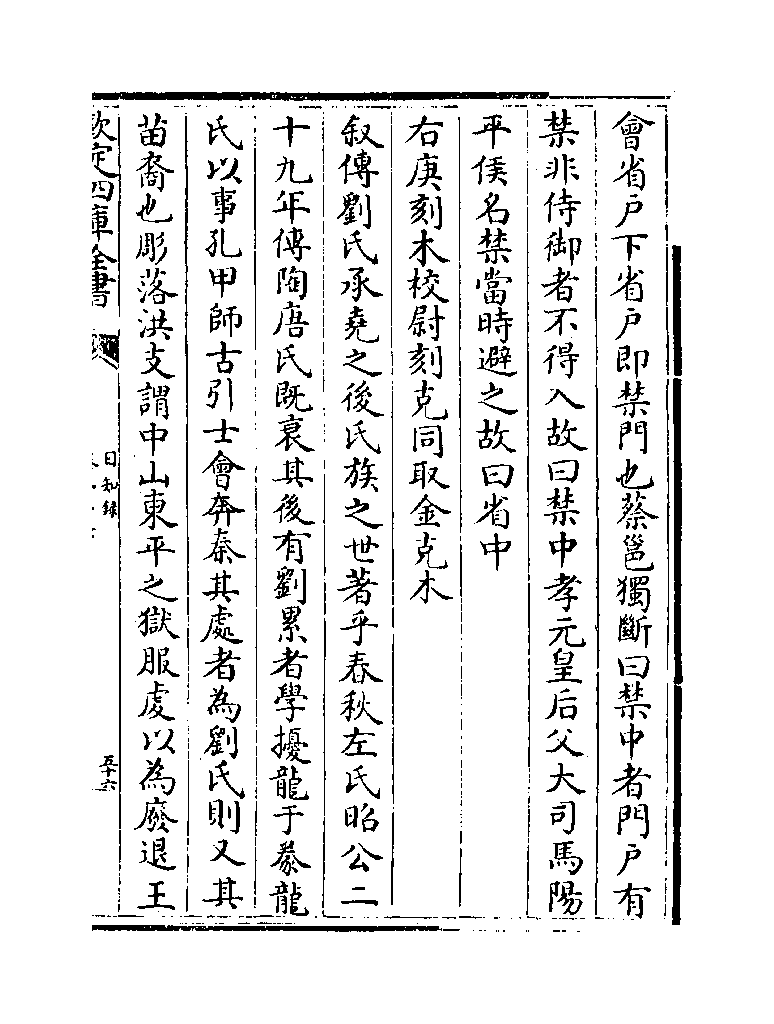 會省戸下省戸即禁門也蔡邕獨斷曰禁中者門戸有
禁非侍御者不得入故曰禁中孝元皇后父大司馬陽
平侯名禁當時避之故曰省中
右庚刻木校尉刻克同取金克木
叙傳劉氏承堯之後氏族之世著乎春秋左氏昭公二
十九年傳陶唐氏既衰其後有劉累者學擾龍于豢龍
氏以事孔甲師古引士會奔秦其處者為劉氏則又其
苗裔也彫落洪支謂中山東平之獄服虔以為廢退王
欽定四庫全書
日知録
五十六